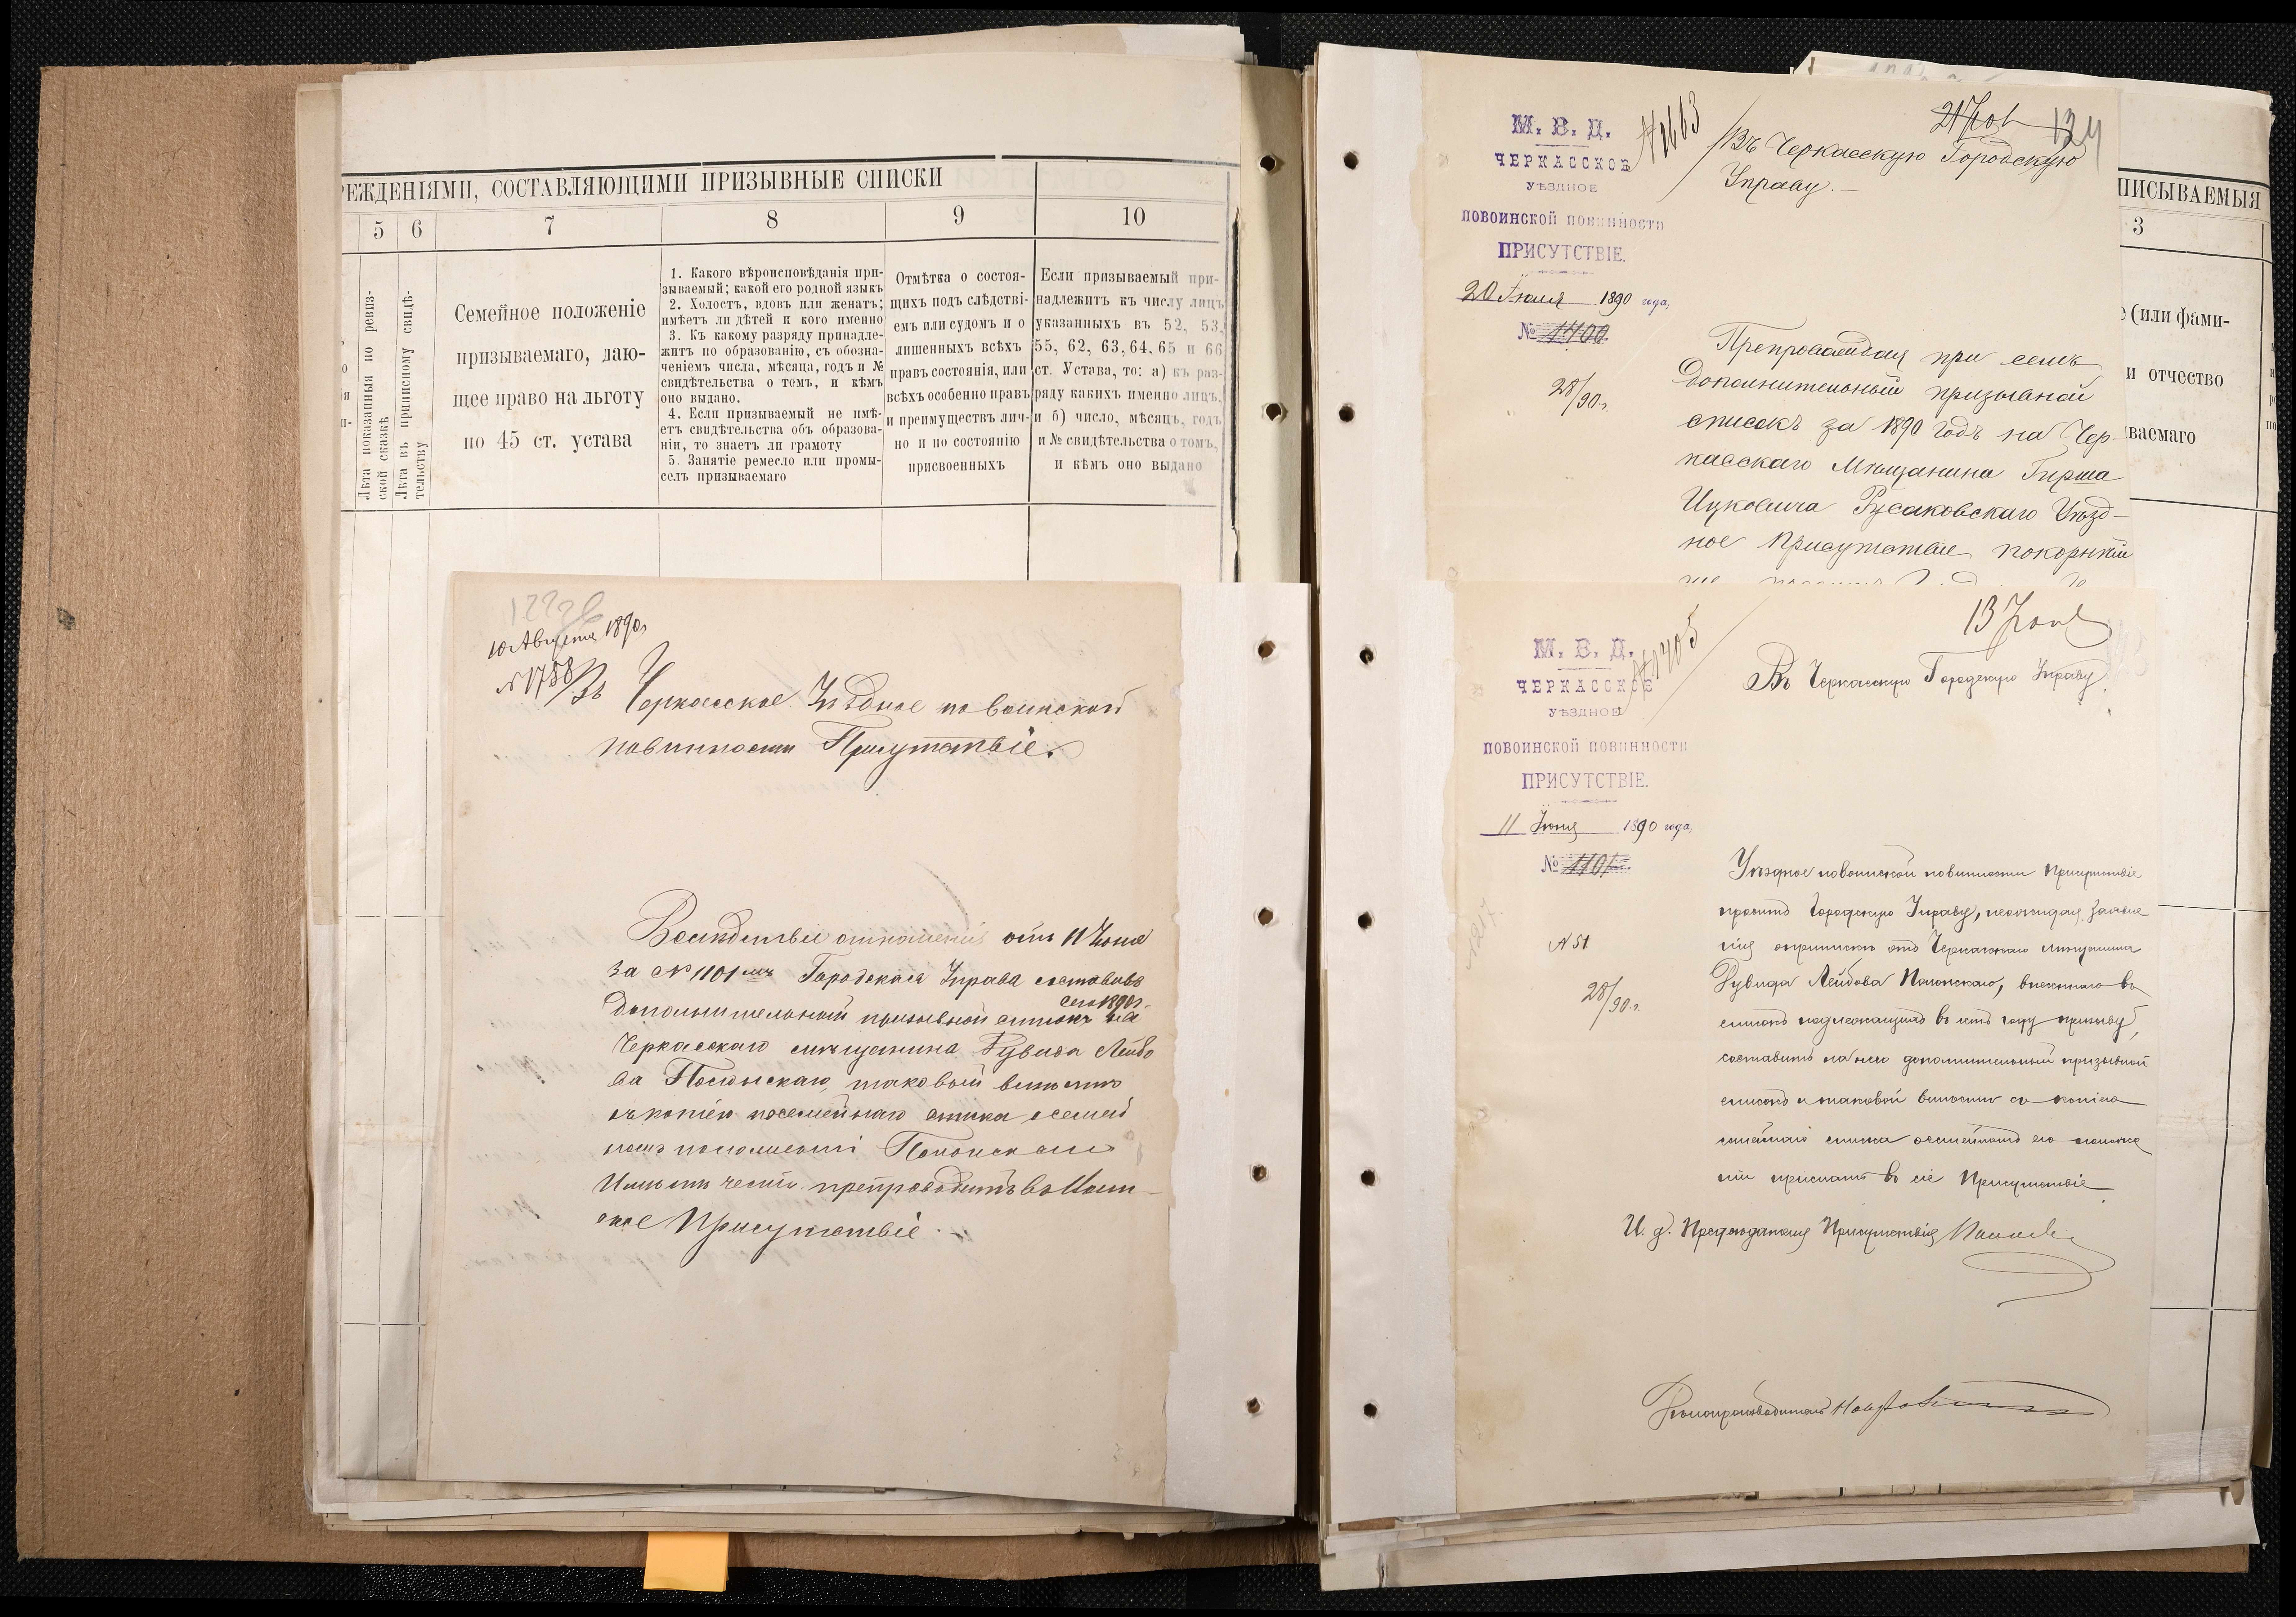 РЕЖДЕНІЯМИ, СОСТАВЛЯЮЩИМИ ПРИЗЫВНЫЕ СПИСКИ
5 6 7 8 9 10
Лѣта показанныя по ревиз-
ской сказкѣ
Лѣта въ приписному свидѣ-
тельству
Семейное положеніе
призываемаго, даю-
щее право на льготу
по 45 ст. устава
1. Какого вѣроисповѣданія при-
зываемый; какой его родной языкъ
2. Холостъ, вдовъ или женатъ;
имѣетъ ли дѣтей и кого именно
3. Къ какому разряду принадле-
житъ по образованію, съ обозна-
ченіемъ числа, мѣсяца, годъ и №
свидѣтельства о томъ, и кѣмъ
оно выдано.
4. Если призываемый не имѣ-
етъ свидѣтельства объ образова-
ніи, то знаетъ ли грамоту
5. Занятіе ремесло или промы-
селъ призываемаго
Отмѣтка о состоя-
щихъ подъ слѣдстві-
емъ или судомъ и о
лишенныхъ всѣхъ
правъ состоянія, или
всѣхъ особенно правъ
и преимуществъ лич-
но и по состоянію
присвоенныхъ
Если призываемый при-
надлежитъ къ числу лицъ
указанныхъ въ 52, 53,
55, 62, 63, 64, 65 и 66
ст. Устава, то: а) къ раз-
ряду какихъ именно лицъ,
и б) число, мѣсяцъ, годъ
и № свидѣтельства о томъ,
и кѣмъ оно выдано
10 Августа 1890
№ 1788
Въ Черкасское Уѣздное по воинской
повинности Присутствіе.
Вслѣдствіе отношенія отъ 11 Іюня
за № 1101 Городская Управа составивъ
сего 1890 г.
дополнительный призывной списокъ на
Черкасскаго мѣщанина Рувина Лейбо
ва Полонскаго, таковый вмѣстѣ
съ копіею посемейнаго списка о семей
номъ положеніи Полонскаго
Имѣетъ честь препроводить въ Уѣзд-
ное Присутствіе.
М. В. Д.
ЧЕРКАССКОЕ
УѢЗДНОЕ
ПОВОИНСКОЙ ПОВИННОСТИ
ПРИСУТСТВІЕ.
20 Іюля 1890 года,
№ 1400
28/90 г.
№ 1663
21 Іюл
134
Въ Черкасскую Городскую
Управу.
Препровождая при семъ
дополнительный призывной
списокъ за 1890 годъ на Чер-
касскаго Мѣщанина Гирша
Ицковича Русаковскаго Уѣзд-
ное Присутствіе покорнѣй
ПИСЫВАЕМЫЯ
3
е (или фами-
и отчество
ываемаго
М. В. Д.
ЧЕРКАССКОЕ
УѢЗДНОЕ
ПОВОИНСКОЙ ПОВИННОСТИ
ПРИСУТСТВІЕ.
11 Іюня 1890 года,
№ 1101
№ 51
28/90 г.
№ 1405
13 Іюня
Въ Черкасскую Городскую Управу
Уѣздное по воинской повинности Присутствіе
проситъ Городскую Управу, неожидая заявле
нія о припискѣ отъ Черкасскаго мѣщанина
Рувина Лейбова Полонскаго, внесеннаго въ
списокъ подлежащихъ въ семъ году призыву,
составить на него дополнительный призывной
списокъ и таковой вмѣстѣ съ копіею
семейнаго списка о семейномъ его положе
ніи прислать въ сіе Присутствіе
И. д. Предсѣдателя Присутствія
Дѣлопроизводитель